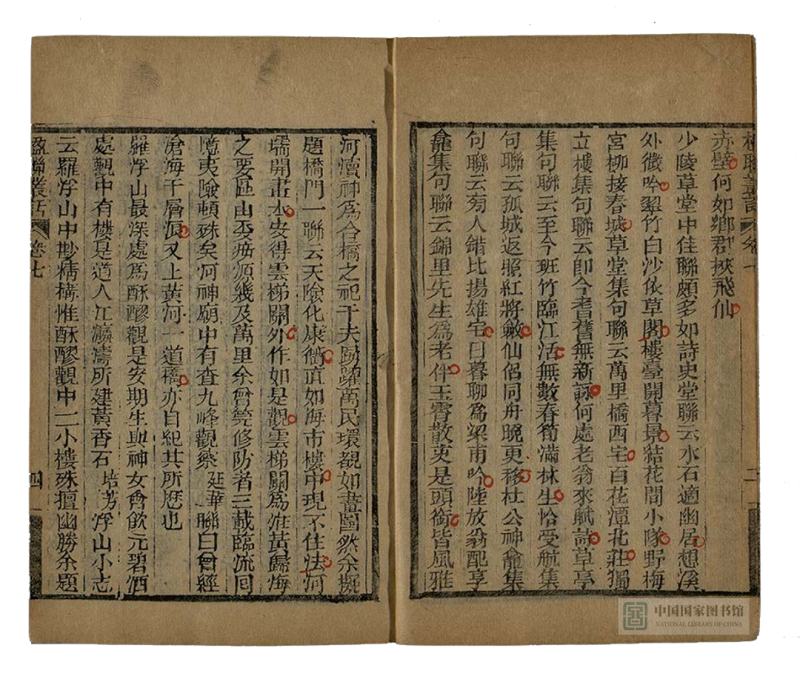 赤壁何如鄉郡挾飛仙
少陵草堂中佳聯頗多如詩史堂聯云水石適幽居想溪
外微吟翠竹白沙依草閣樓臺開暮景結花間小隊野梅
宮柳接春城草堂集句聯云萬里橋西宅百花潭北莊獨
立樓集句聯云即今耆舊無新詠何處老翁來賦詩草亭
集句聯云至今班竹臨江活無數春筍滿林生恰受航集
句聯云孤城返照紅將斂仙侶同舟晚更移杜公神龕集
句聯云荒人錯比揚雄宅日暮聊爲梁甫吟陸放翁配享
龕集句聯云錦里先生爲老伴玉霄散吏是頭銜皆風雅
河瀆神爲合橋之祀千夫萬民環觀如畫圖然余擬
題橋門一聯云天險化康衢直如海市樓中現不住法河
壖開畫本安得雲梯關外作如是觀雲梯關爲淮黃歸海
之要區由發源幾及萬里余曾筦修防者三載臨流回
憶夷險頓殊矣河神廟中有查九峰觀察廷華聯曰曾經
滄海千層浪又上黃河一道橋亦自紀其所歷也
羅浮山最深處爲酥醪觀是安期生與神女會飲元碧酒
處觀中有樓是道人江瀛濤所建黃香石培芳浮山小志
云羅浮山中黝精構惟酥醪觀中一二小樓殊擅幽勝余題
楹聯叢話 卷七 四